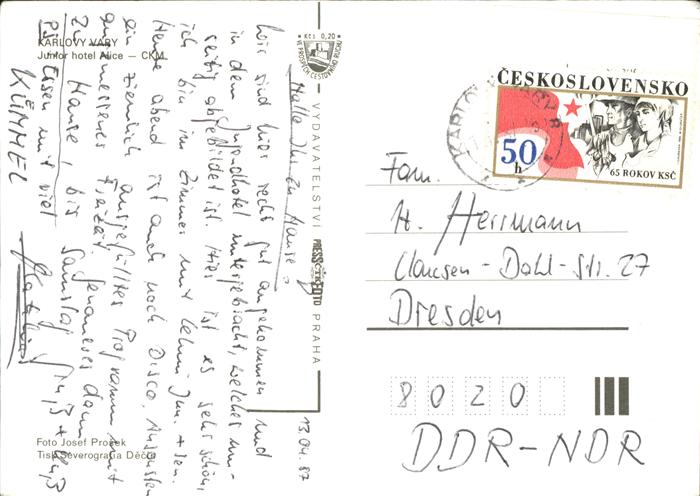 KARLOVY VARY
Junior hotel Alice – CKM
13.04.87
Hallo Ihr zu Hause!
Wir sind hier recht gut angekommen und
in dem Jugendhotel untergebracht, welches um-
seitig abgebildet ist. Hier ist es sehr schön,
ich bin im Zimmer mit
Heute abend ist auch noch Disco. Ansonsten
ein ziemlich ausgefülltes Programm mit
angemessener Freizeit. Genaueres dann
zu Hause, bis Samstag
PS: Essen mit viel
KÜMMEL
Kčs 0,20
VE PROSPĚCH CESTOVNÍHO RUCHU
VYDAVATELSTVÍ PRESSFOTO PRAHA
Foto Josef Prošek
Tisk Severografia Děčín
ČESKOSLOVENSKO
50 h
65 ROKOV KSČ
KARLOVY VARY
Fam.
H. Herrmann
Clausen-Dahl-Str. 27
Dresden
8020
DDR-NDR